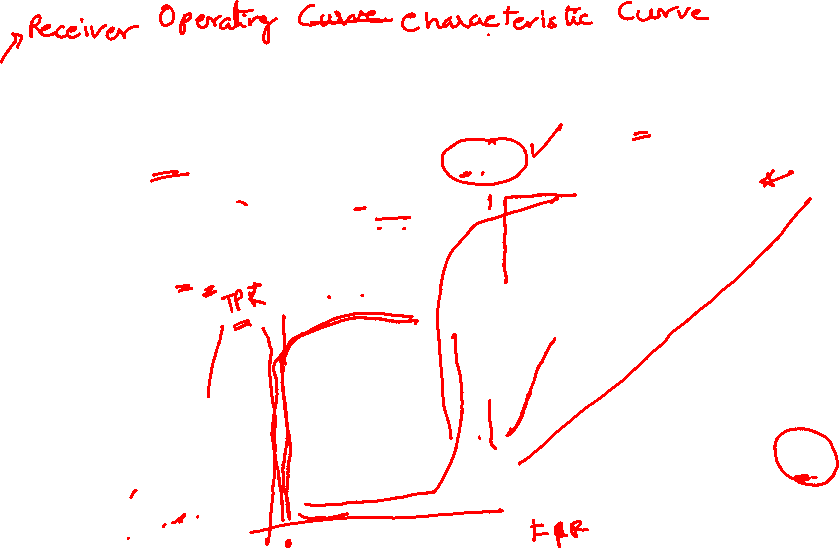 Receiver Operating Curve Characteristic Curve
TPR
FPR